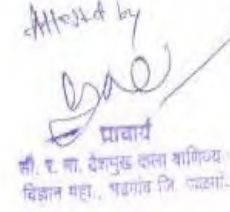 Attested by
प्राचार्य
सौ. र. ना. देशमुख कला वाणिज्य
विज्ञान महा., भडगांव जि. जळगां.